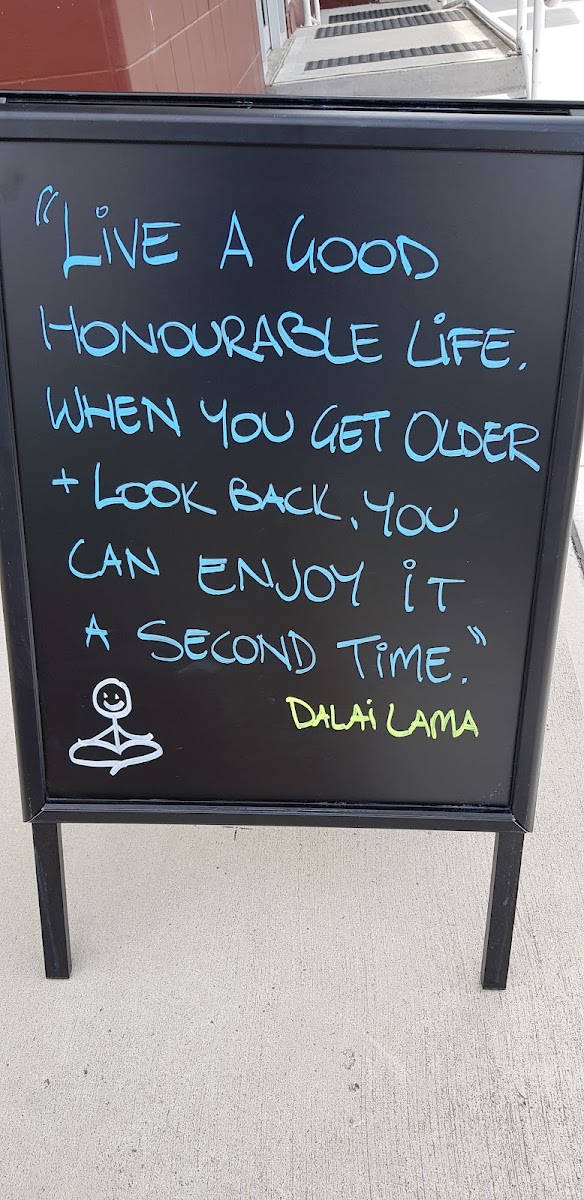 "LiVE A GOOD
HONOURABLE LiFE.
WHEN YOU GET OLDER
+ LOOK BACK, YOU
CAN ENJOY iT
A SECOND TiME."
DALAi LAMA